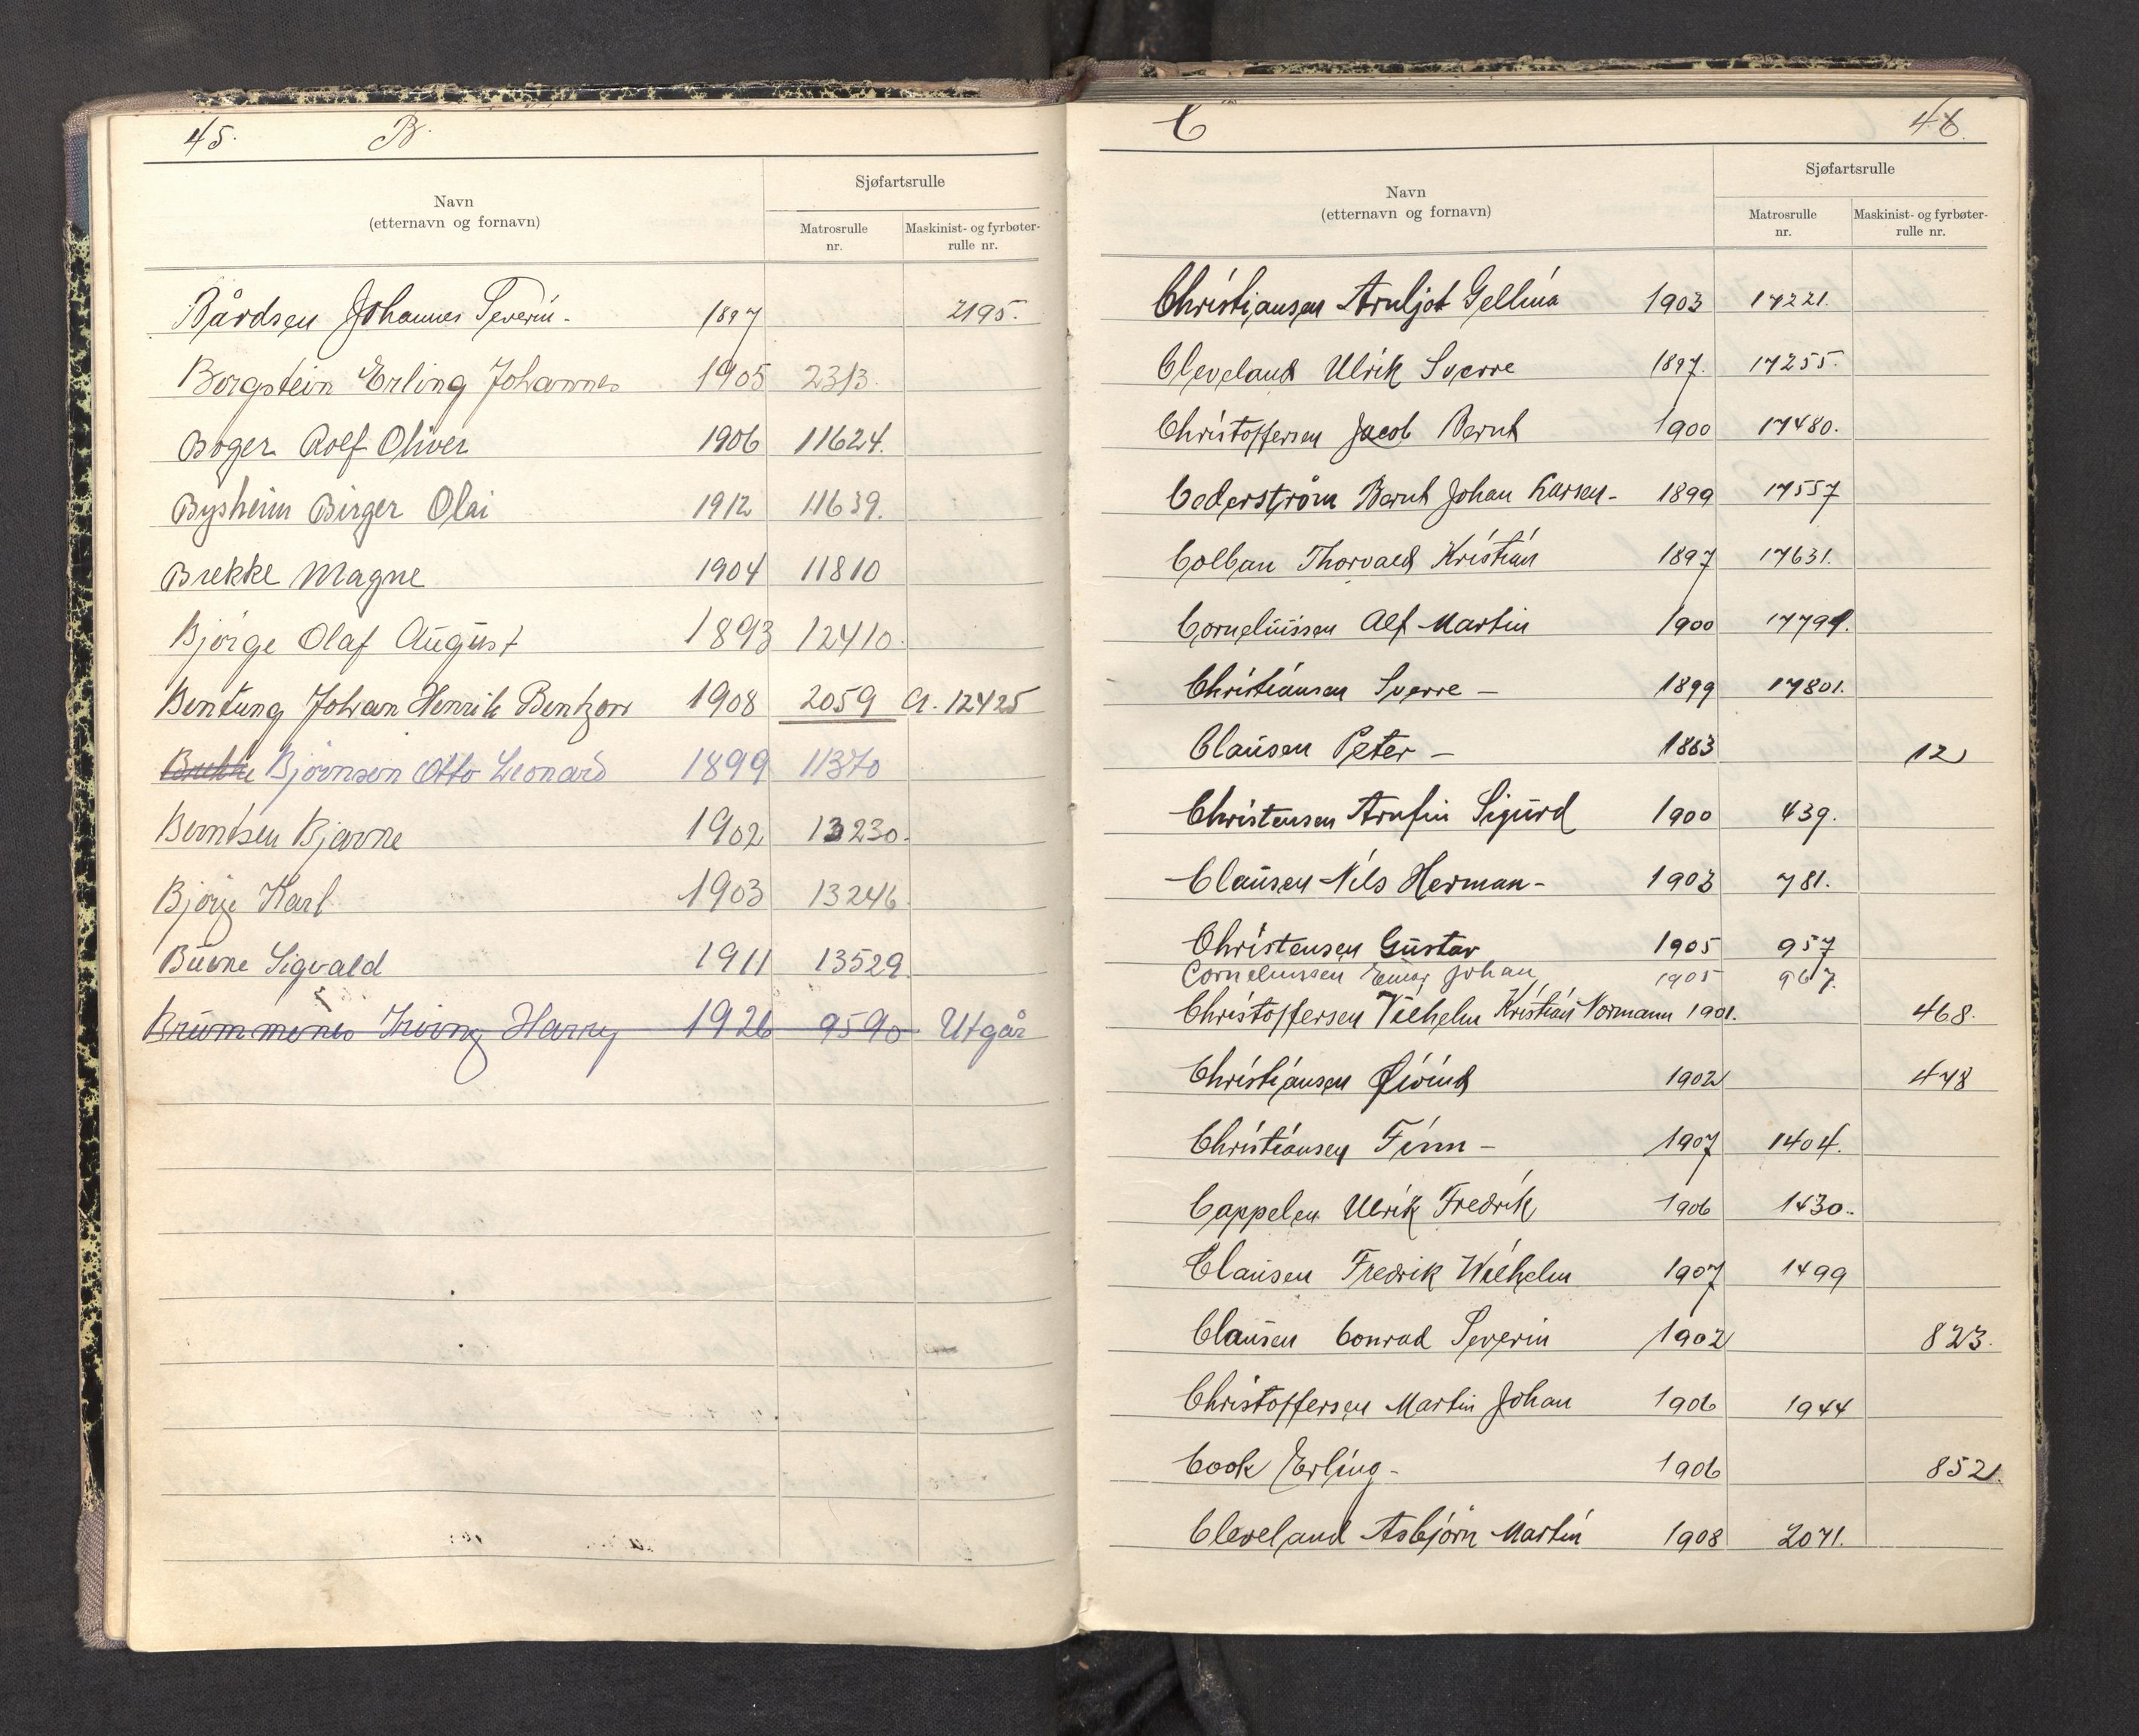 45. B.
Navn
(etternavn og fornavn)
Sjøfartsrulle
Matrosrulle
nr.
Maskinist- og fyrbøter-
rulle nr.
Bårdsen Johannes Severin. 1897 2195.
Borgstein Erling Johannes 1905 2313.
Boger Rolf Oliver 1906 11624.
Bysheim Birger Olai 1912 11639.
Brekke Magne 1904 11810
Bjørge Olaf August 1893 12410.
Bentung Johan Henrik Bentzon 1908 2059 A. 12425
Brekke Bjørnsen Otto Leonard 1899 11370
Berntsen Bjarne 1902 13230.
Bjørge Karl 1903 13246.
Buene Sigvald 1911 13529.
Irving Harry 1926 9590 Utgår
C 46.
Navn
(etternavn og fornavn)
Sjøfartsrulle
Matrosrulle
nr.
Maskinist- og fyrbøter-
rulle nr.
Christiansen Arnljot Gellina 1903 17221.
Cleveland Ulrik Sverre 1897. 17255.
Christoffersen Jacob Bernt 1900 17480.
Cederstrøm Bernt Johan Larsen - 1899 17557
Colban Thorvald Kristian 1897 17631.
Corneliussen Alf Martin 1900 17791.
Christiansen Sverre - 1899 17801.
Clausen Peter - 1883 12
Christensen Arnfin Sigurd 1900 439.
Clausen Nils Herman - 1903 781.
Christensen Gustav 1905 957
Corneliussen Einar Johan 1905 967.
Christoffersen Vilhelm Kristian Normann 1901. 468.
Christiansen Øivind 1902 478
Christiansen Finn - 1907 1404.
Cappelen Ulrik Fredrik 1906 1430.
Clausen Fredrik Wilhelm 1907 1499
Clausen Conrad Severin 1902 823.
Christoffersen Martin Johan 1906 1944
Cook Erling - 1906 852.
Cleveland Asbjørn Martin 1908 2071.